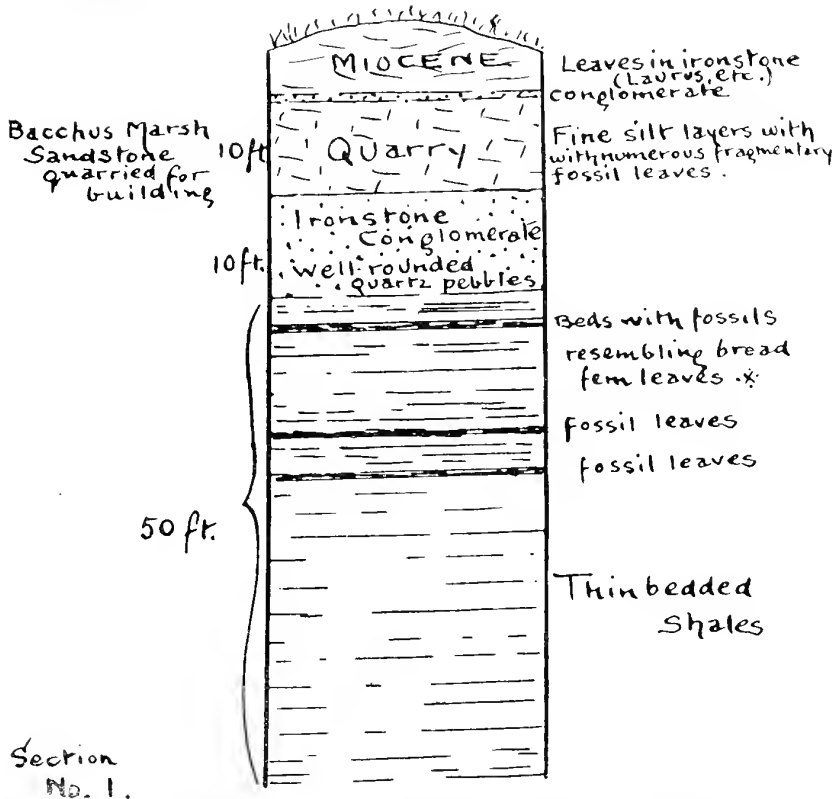 MIOCENE
Leaves in ironstone
(Laurus, etc.)
conglomerate
Bacchus Marsh
Sandstone
quarried for
building
10ft
Quarry
Fine silt layers with
with numerous fragmentary
fossil leaves.
10ft.
Ironstone
Conglomerate
Well rounded
quartz pebbles
Beds with fossils
resembling bread
fern leaves
fossil leaves
fossil leaves
50 ft.
Thin bedded
Shales
Section
No. 1.